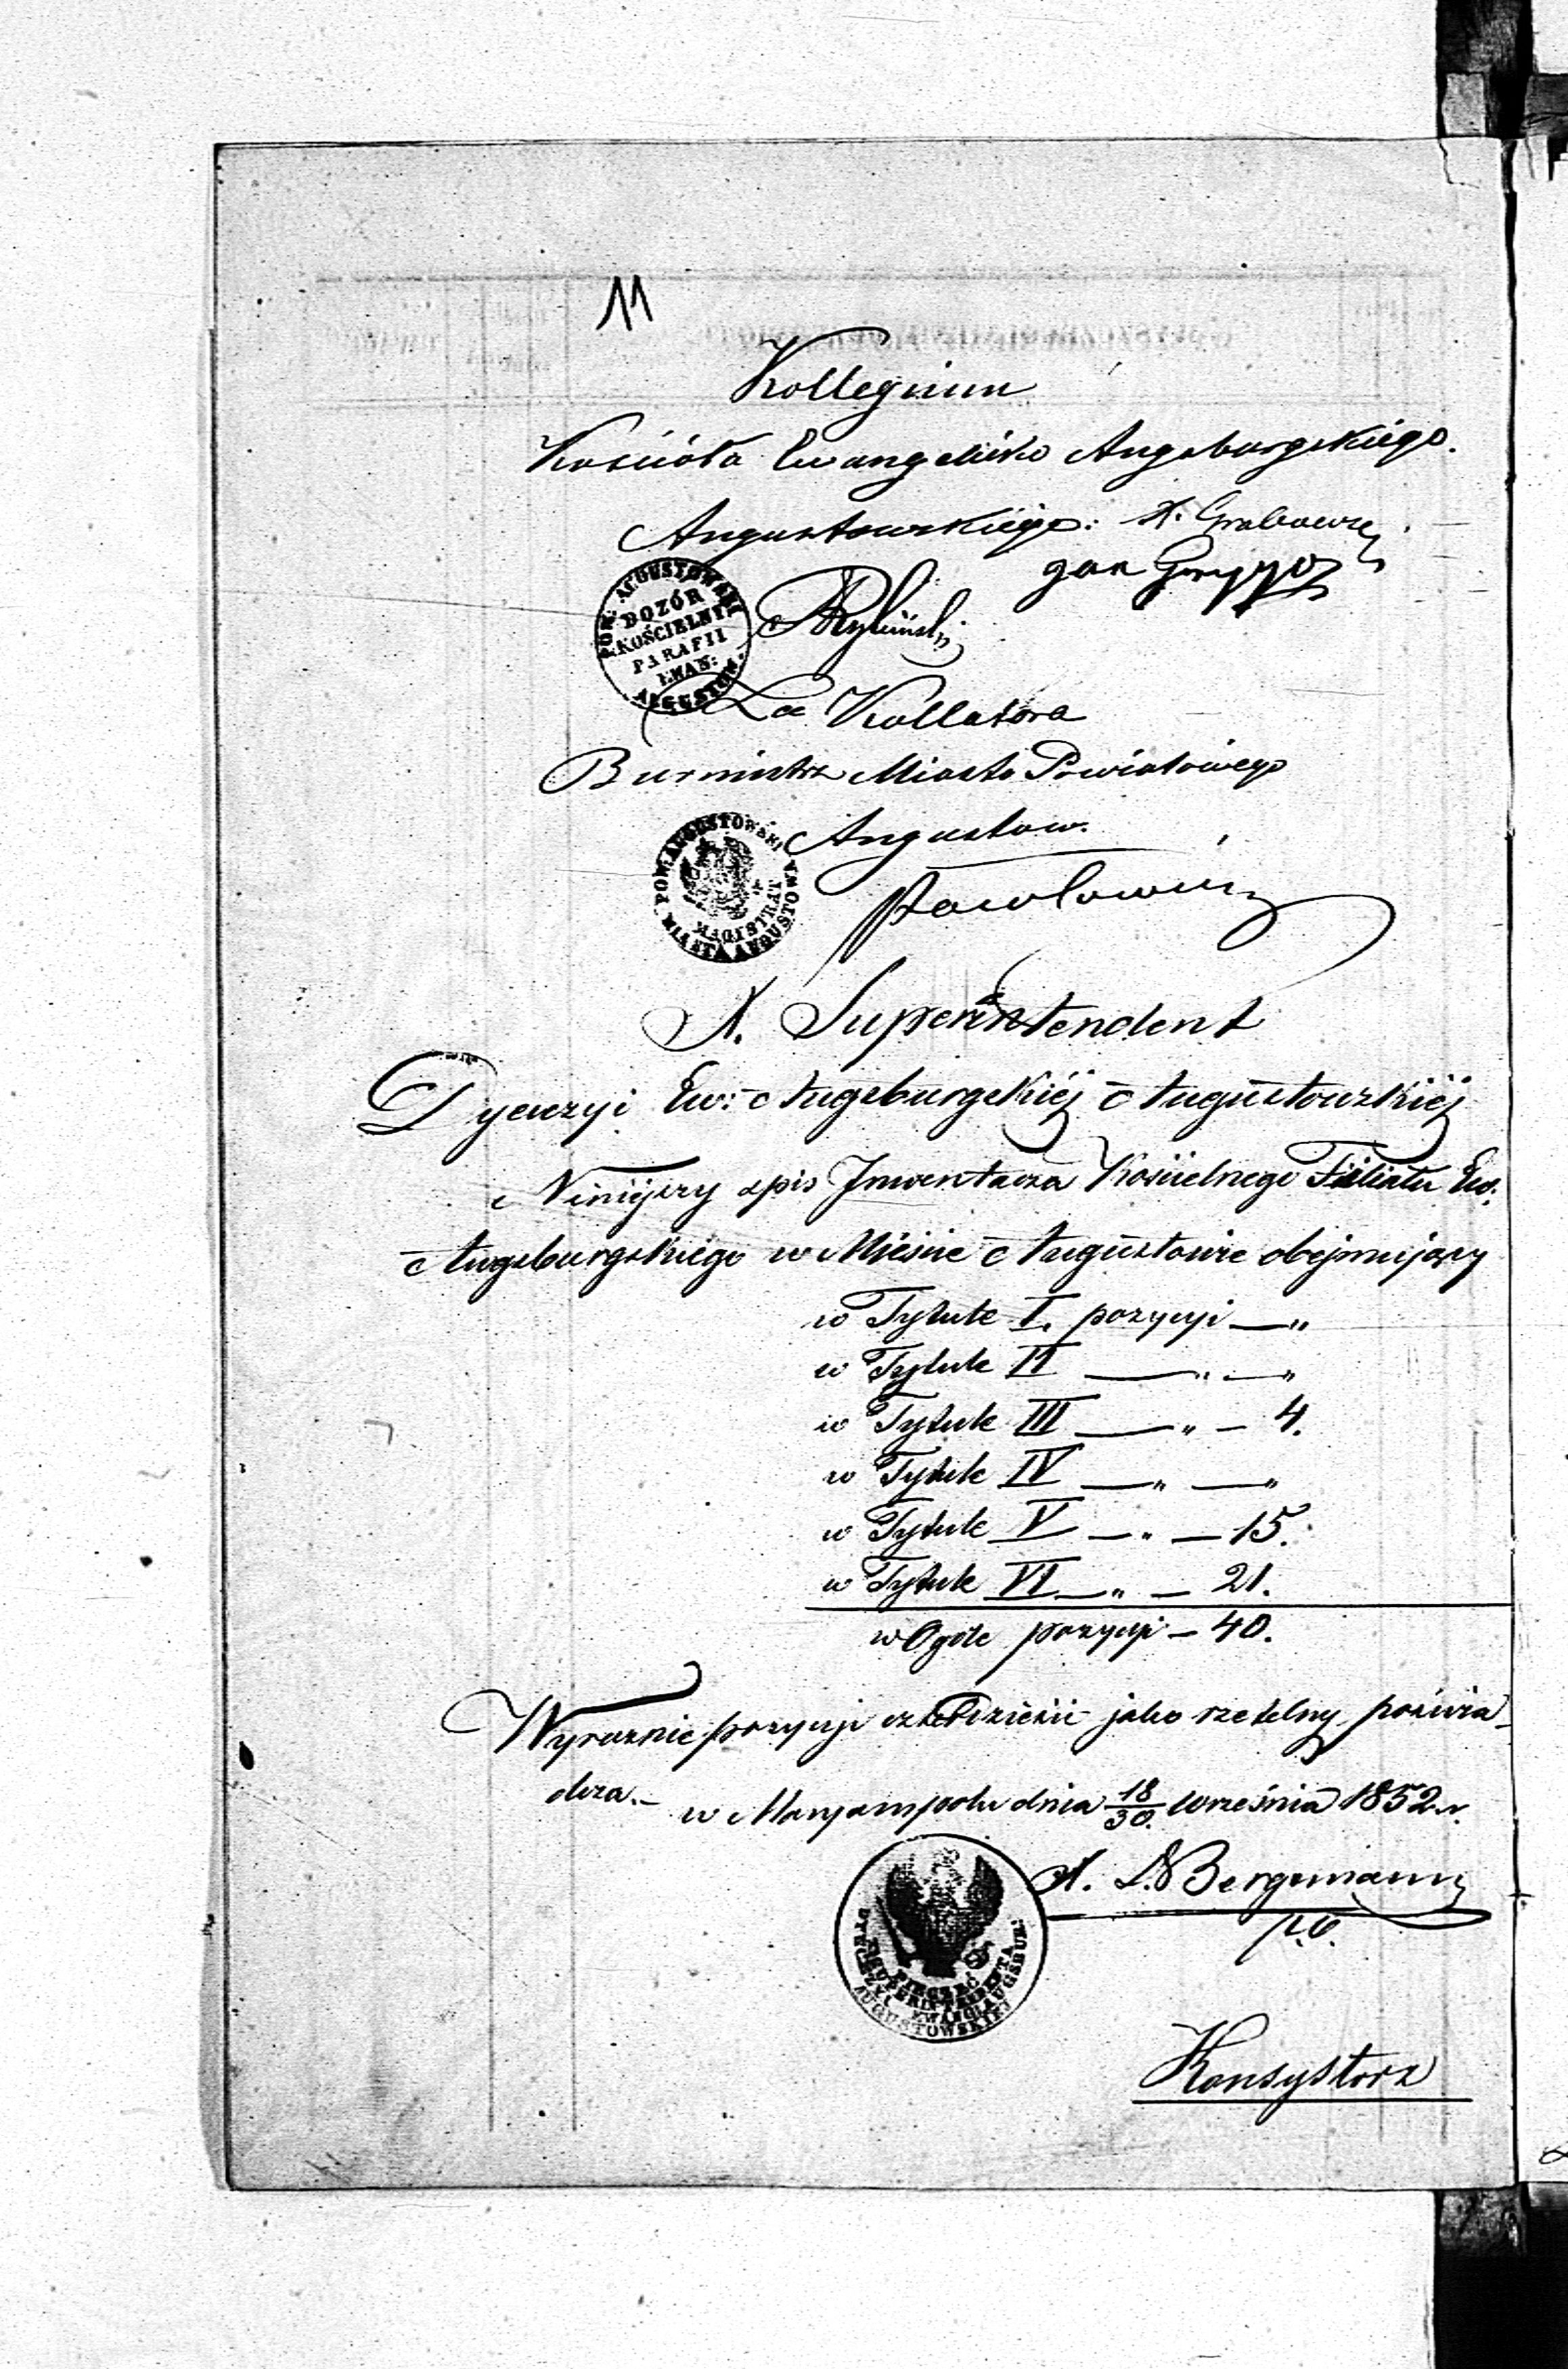 11
Kollegium
Kościoła Ewangelicko Augsburgskiego.
Augustowskiego: X. Grabowski
Jan
POW: AUGUSTOWSKI
DOZÓR
KOŚCIELNY
PARAFII
EWAN:
AUGUSTOW.
Za Kollatora
Burmistrz Miasta Powiatowego
Augustow.
POW: AUGUSTOWSKI
MAGISTRAT
MIASTA AUGUSTOWA
Pawłowicz
X. Superintendent
Dyecezyi Ew: Augsburgskiéj Augustowskiéj
Niniejszy spis Inwentarza Kościelnego Filiału Ew:
Augsburgskiego w Mieście Augustowie obejmujący
w Tytule I. pozycyi — „
w Tytule II — „ — „
w Tytule III — „ — 4.
w Tytule IV — „ — „
w Tytule V — „ — 15.
w Tytule VI — „ — 21.
w Ogóle pozycyi — 40.
Wyraznie pozycyi czterdzieści jako rzetelny poświa-
dcza.–
w Maryampolu dnia 18/30. Września 1852 r.
X. L. Bergemann
p.o.
PIECZĘĆ
SUPERINTENDENTA
DYECEZYI EWANG: AUGSBUR:
AUGUSTOWSKIEJ
Konsystorz